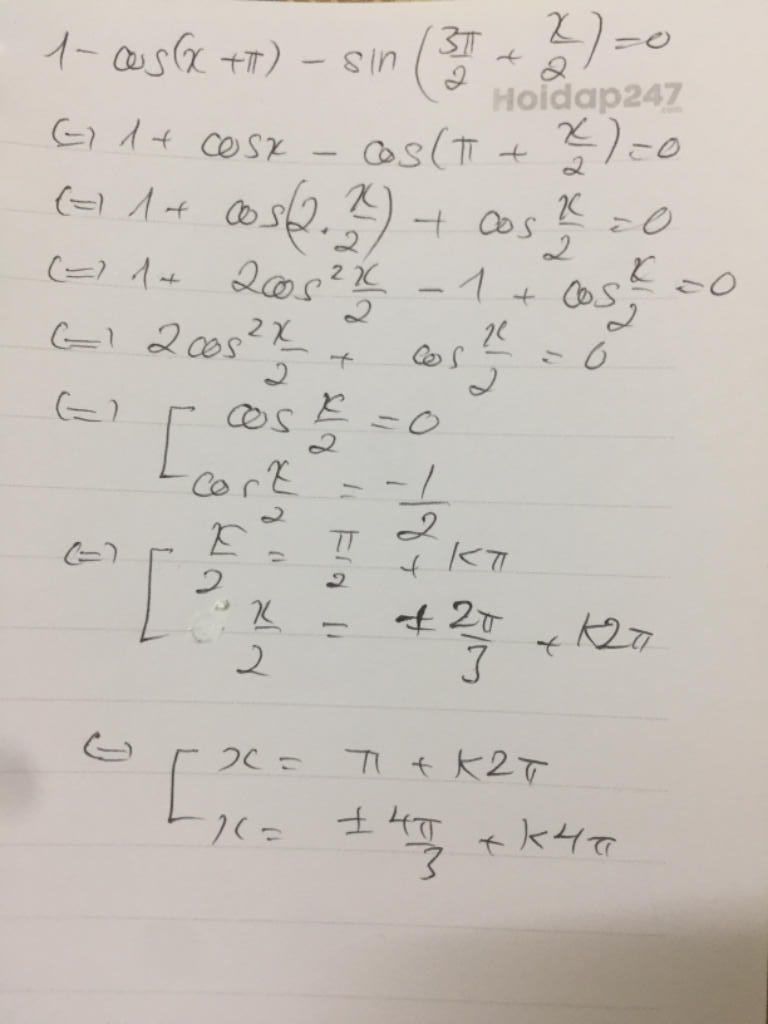 1 - cos(x + π) - sin(3π/2 + x/2) = 0
Hoidap247.com
(=) 1 + cosx - cos(π + x/2) = 0
(=) 1 + cos(2.x/2) + cos x/2 = 0
(=) 1 + 2cos² x/2 - 1 + cos x/2 = 0
(=) 2cos² x/2 + cos x/2 = 0
(=) [ cos x/2 = 0
cos x/2 = -1/2
(=) [ x/2 = π/2 + kπ
x/2 = ± 2π/3 + k2π
(=) [ x = π + k2π
x = ± 4π/3 + k4π